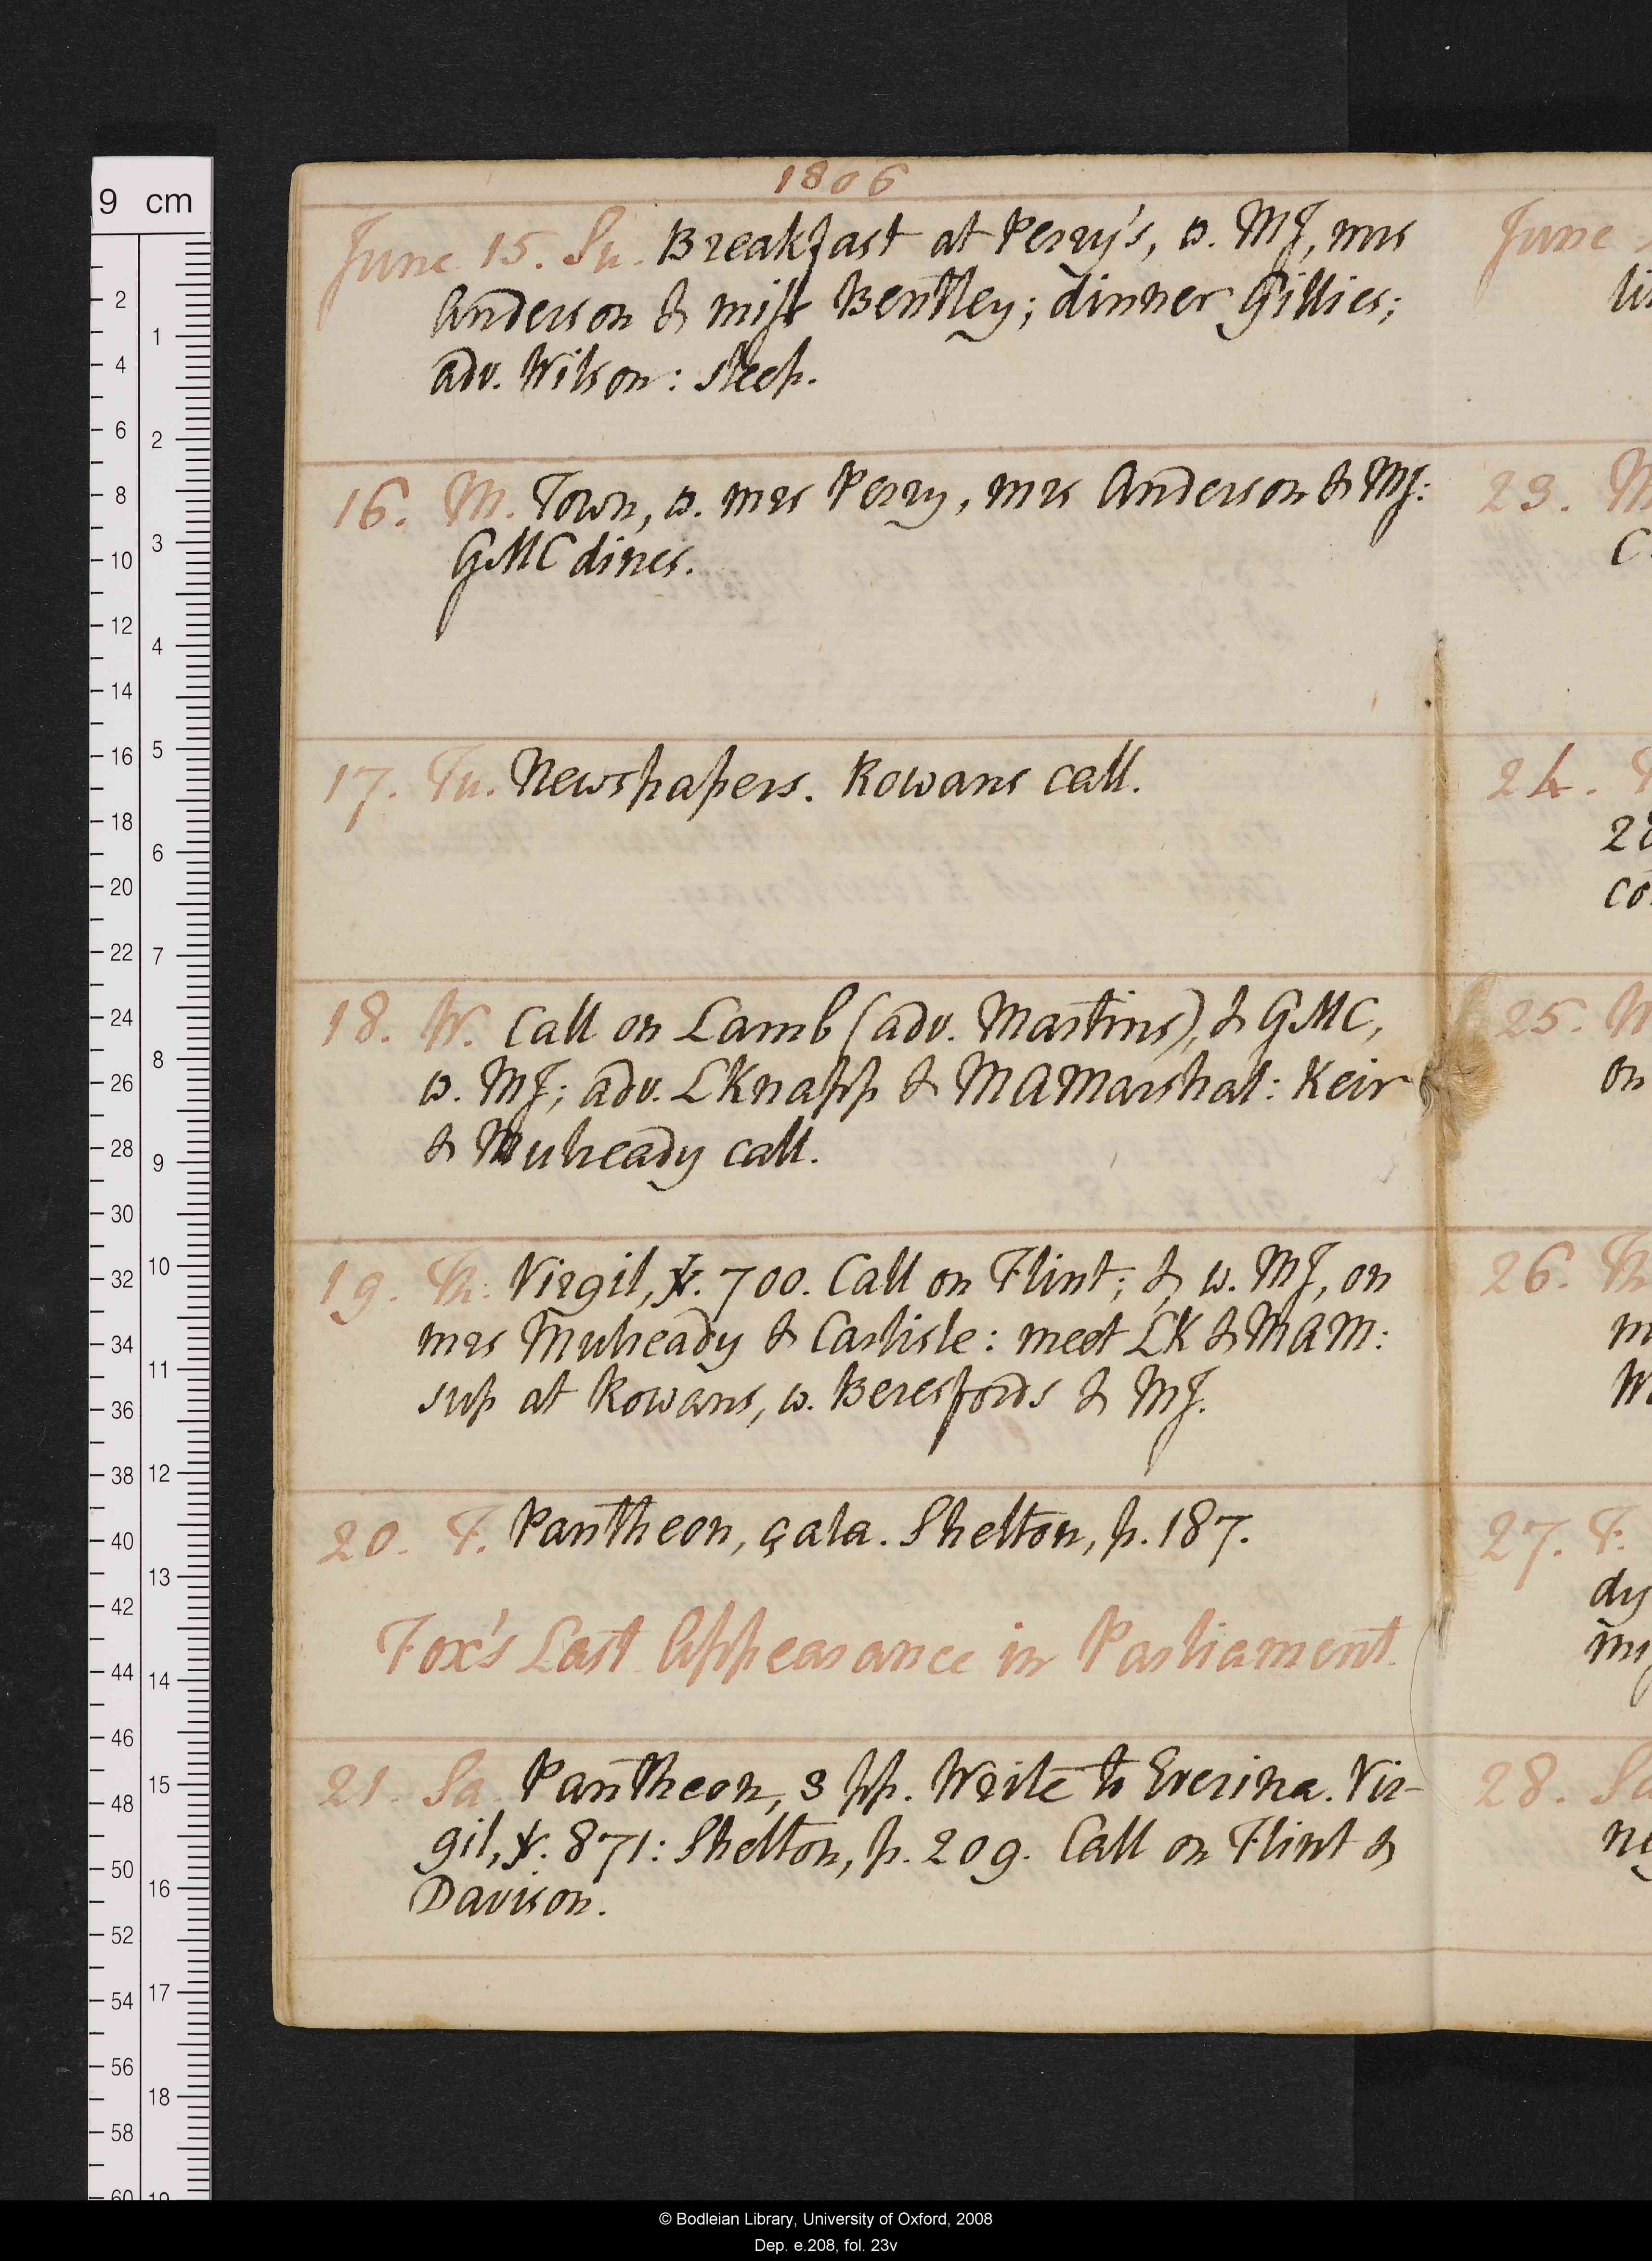 1806
June 15. Su. Breakfast at Perry's, w. MJ, mrs
Anderson & miss Bentley; dinner Gillies;
adv. Wilson: sleep.
16. M. Town, w. mrs Perry, mrs Anderson & MJ:
GMC dines.
17. Tu. Newspapers. Rowans call.
18. W. Call on Lamb (adv. Martins), & GMC,
w. MJ; adv. LKnapp & MAMarshal: Keir
& Muheady call.
19. Th. Virgil, . 700. Call on Flint; &, w. MJ, on
mrs Muheady & Carlisle: meet LK & MAM:
sup at Rowans, w. Beresfords & MJ.
20. F. Pantheon, çala. Shelton, p. 187.
Fox's Last Appearance in Parliament.
21. Sa. Pantheon, 3 pp. Write to Everina. Vir-
gil, . 871: Shelton, p. 209. Call on Flint &
Davison.
June
23. M
24.
25. W
on
26. Th
27. F.
dy
28. Sa
9 cm
2
4
6
8
10
12
14
16
18
20
22
24
26
28
30
32
34
36
38
40
42
44
46
48
50
52
54
56
58
60
1
2
3
4
5
6
7
8
9
10
11
12
13
14
15
16
17
18
19
© Bodleian Library, University of Oxford, 2008
Dep. e.208, fol. 23v